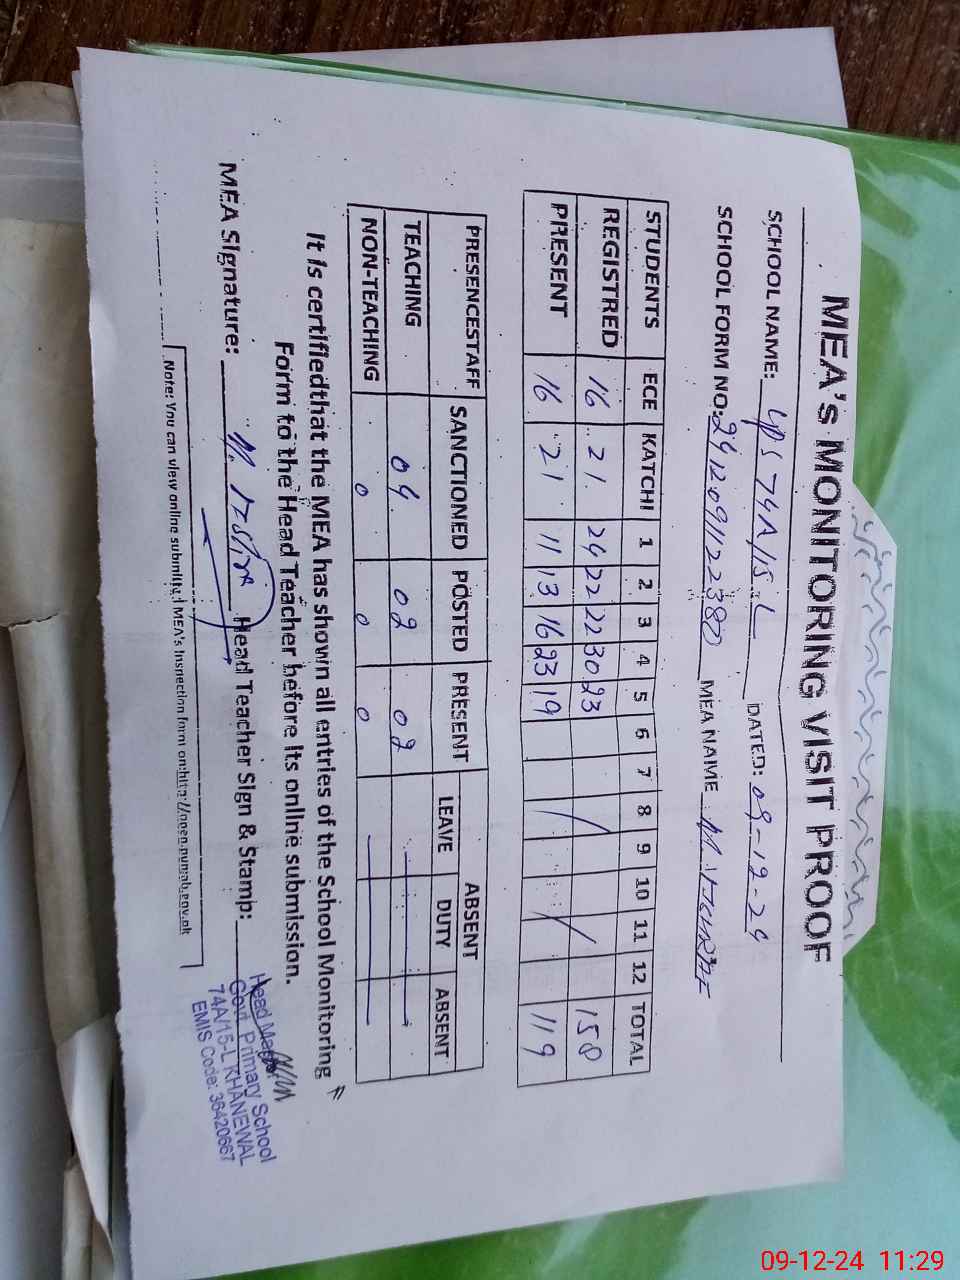 MEA's MONITORING VISIT PROOF
SCHOOL NAME: GPS 74A/15-L DATED: 09-12-24
SCHOOL FORM NO: MEA NAME
STUDENTS ECE KATCHI 1 2 3 4 5 6 7 8 9 10 11 12 TOTAL
REGISTRED 16 21 24 22 22 30 23 158
PRESENT 16 21 11 13 16 23 19 119
PRESENCESTAFF SANCTIONED POSTED PRESENT ABSENT
LEAVE DUTY ABSENT
TEACHING 04 02 02
NON-TEACHING 0 0 0
It is certifiedthat the MEA has shown all entries of the School Monitoring
Form to the Head Teacher before its online submission.
MEA Signature: Head Teacher Sign & Stamp:
Head Master
Govt. Primary School
74A/15-L KHANEWAL
EMIS Code: 36420667
Note: You can view online submitted MEA's Inspection form on:http://open.punjab.gov.pk
09-12-24 11:29